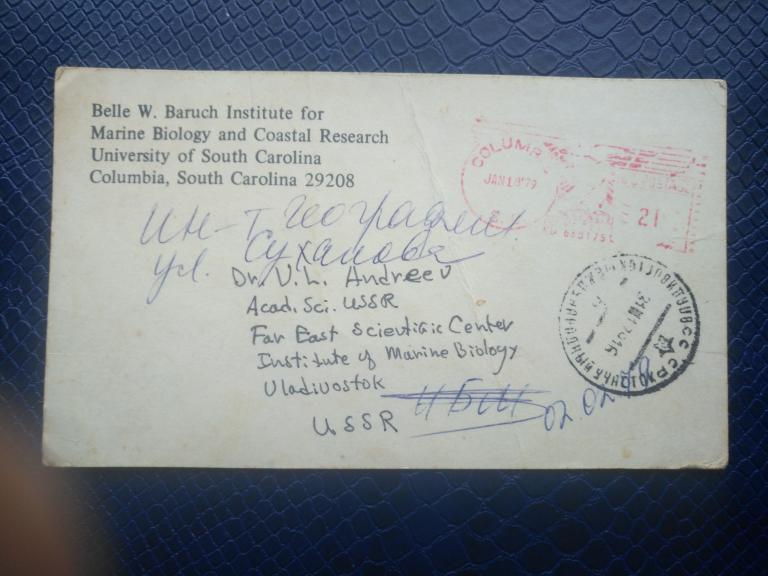 Belle W. Baruch Institute for
Marine Biology and Coastal Research
University of South Carolina
Columbia, South Carolina 29208
JAN 18'79
21
Ин-т Географии
ул. Суханова
Dr. V. L. Andreev
Acad. Sci. USSR
Far East Scientific Center
Institute of Marine Biology
Vladivostok
USSR
ИБМ
02.02.79
СССР